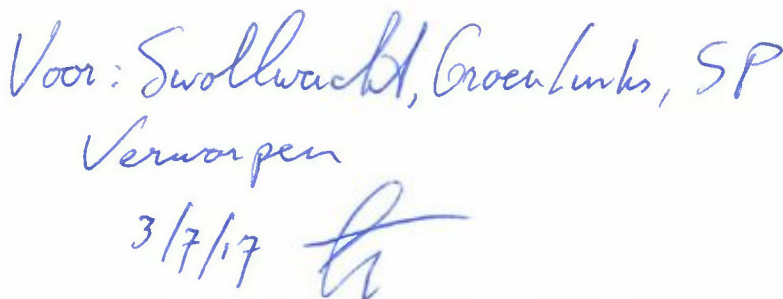 Voor: Swollwacht, GroenLinks, SP
Verworpen
3/7/17